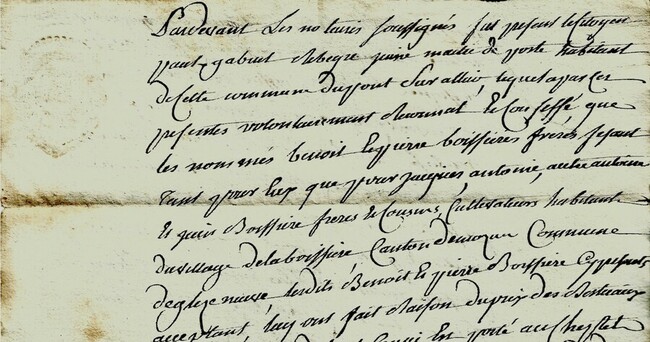 Pardevant Les notaires soussignés fut present le citoyen
paul gabriel jeune maitre de poste habitant
de Cette commune du pont Sur allier, lequel a par Ces
presentes volontairement Reconnut Et Confessé que
les nommés benoit Et pierre boissieres freres fesant
tant pour Eux que pour jacques, antoine, autre antoine
Et Boissiere freres Et Cousins, Cultivateurs habitants
du village de la boissiere Canton de Commune
de lesdits Benoit Et pierre Boissiere
acceptant, luy ont fait Raison du prix des Bestiaux
Et porté au Cheptel